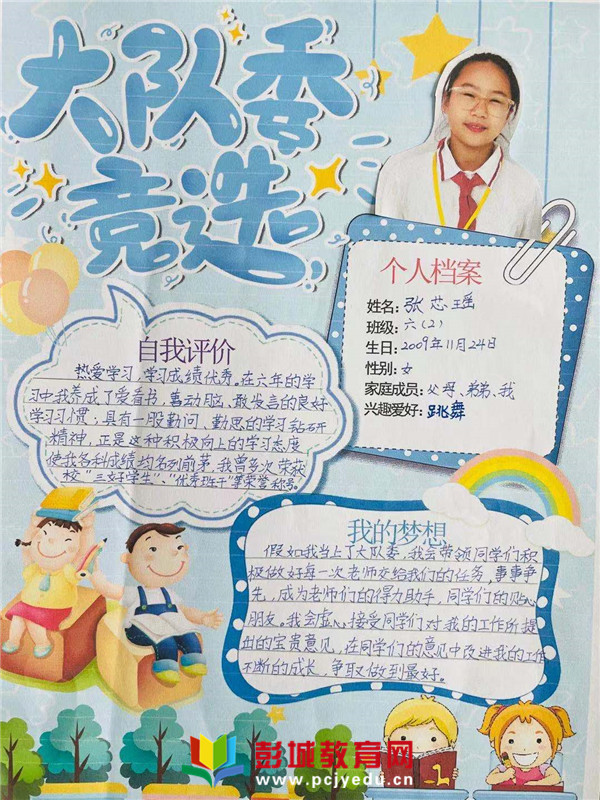 大队委
竞选
个人档案
姓名:张芯瑶
班级:六(2)
生日:2009年11月24日
性别:女
家庭成员:父母、弟弟、我
兴趣爱好:跳舞
自我评价
热爱学习,学习成绩优秀。在六年的学
习中我养成了爱看书,勤动脑、敢发言的良好
学习习惯;具有一股勤问、勤思的学习钻研
精神,正是这种积极向上的学习态度
使我各科成绩均名列前茅。我曾多次荣获
校“三好学生”、“优秀班干”等荣誉称号。
我的梦想
假如我当上了大队委,我会带领同学们积
极做好每一次老师交给我们的任务,事事争
先,成为老师们的得力助手,同学们的贴心
朋友。我会虚心接受同学们对我的工作所提
出的宝贵意见,在同学们的意见中改进我的工作
不断的成长,争取做到最好。
彭城教育网
www.pcjyedu.cn